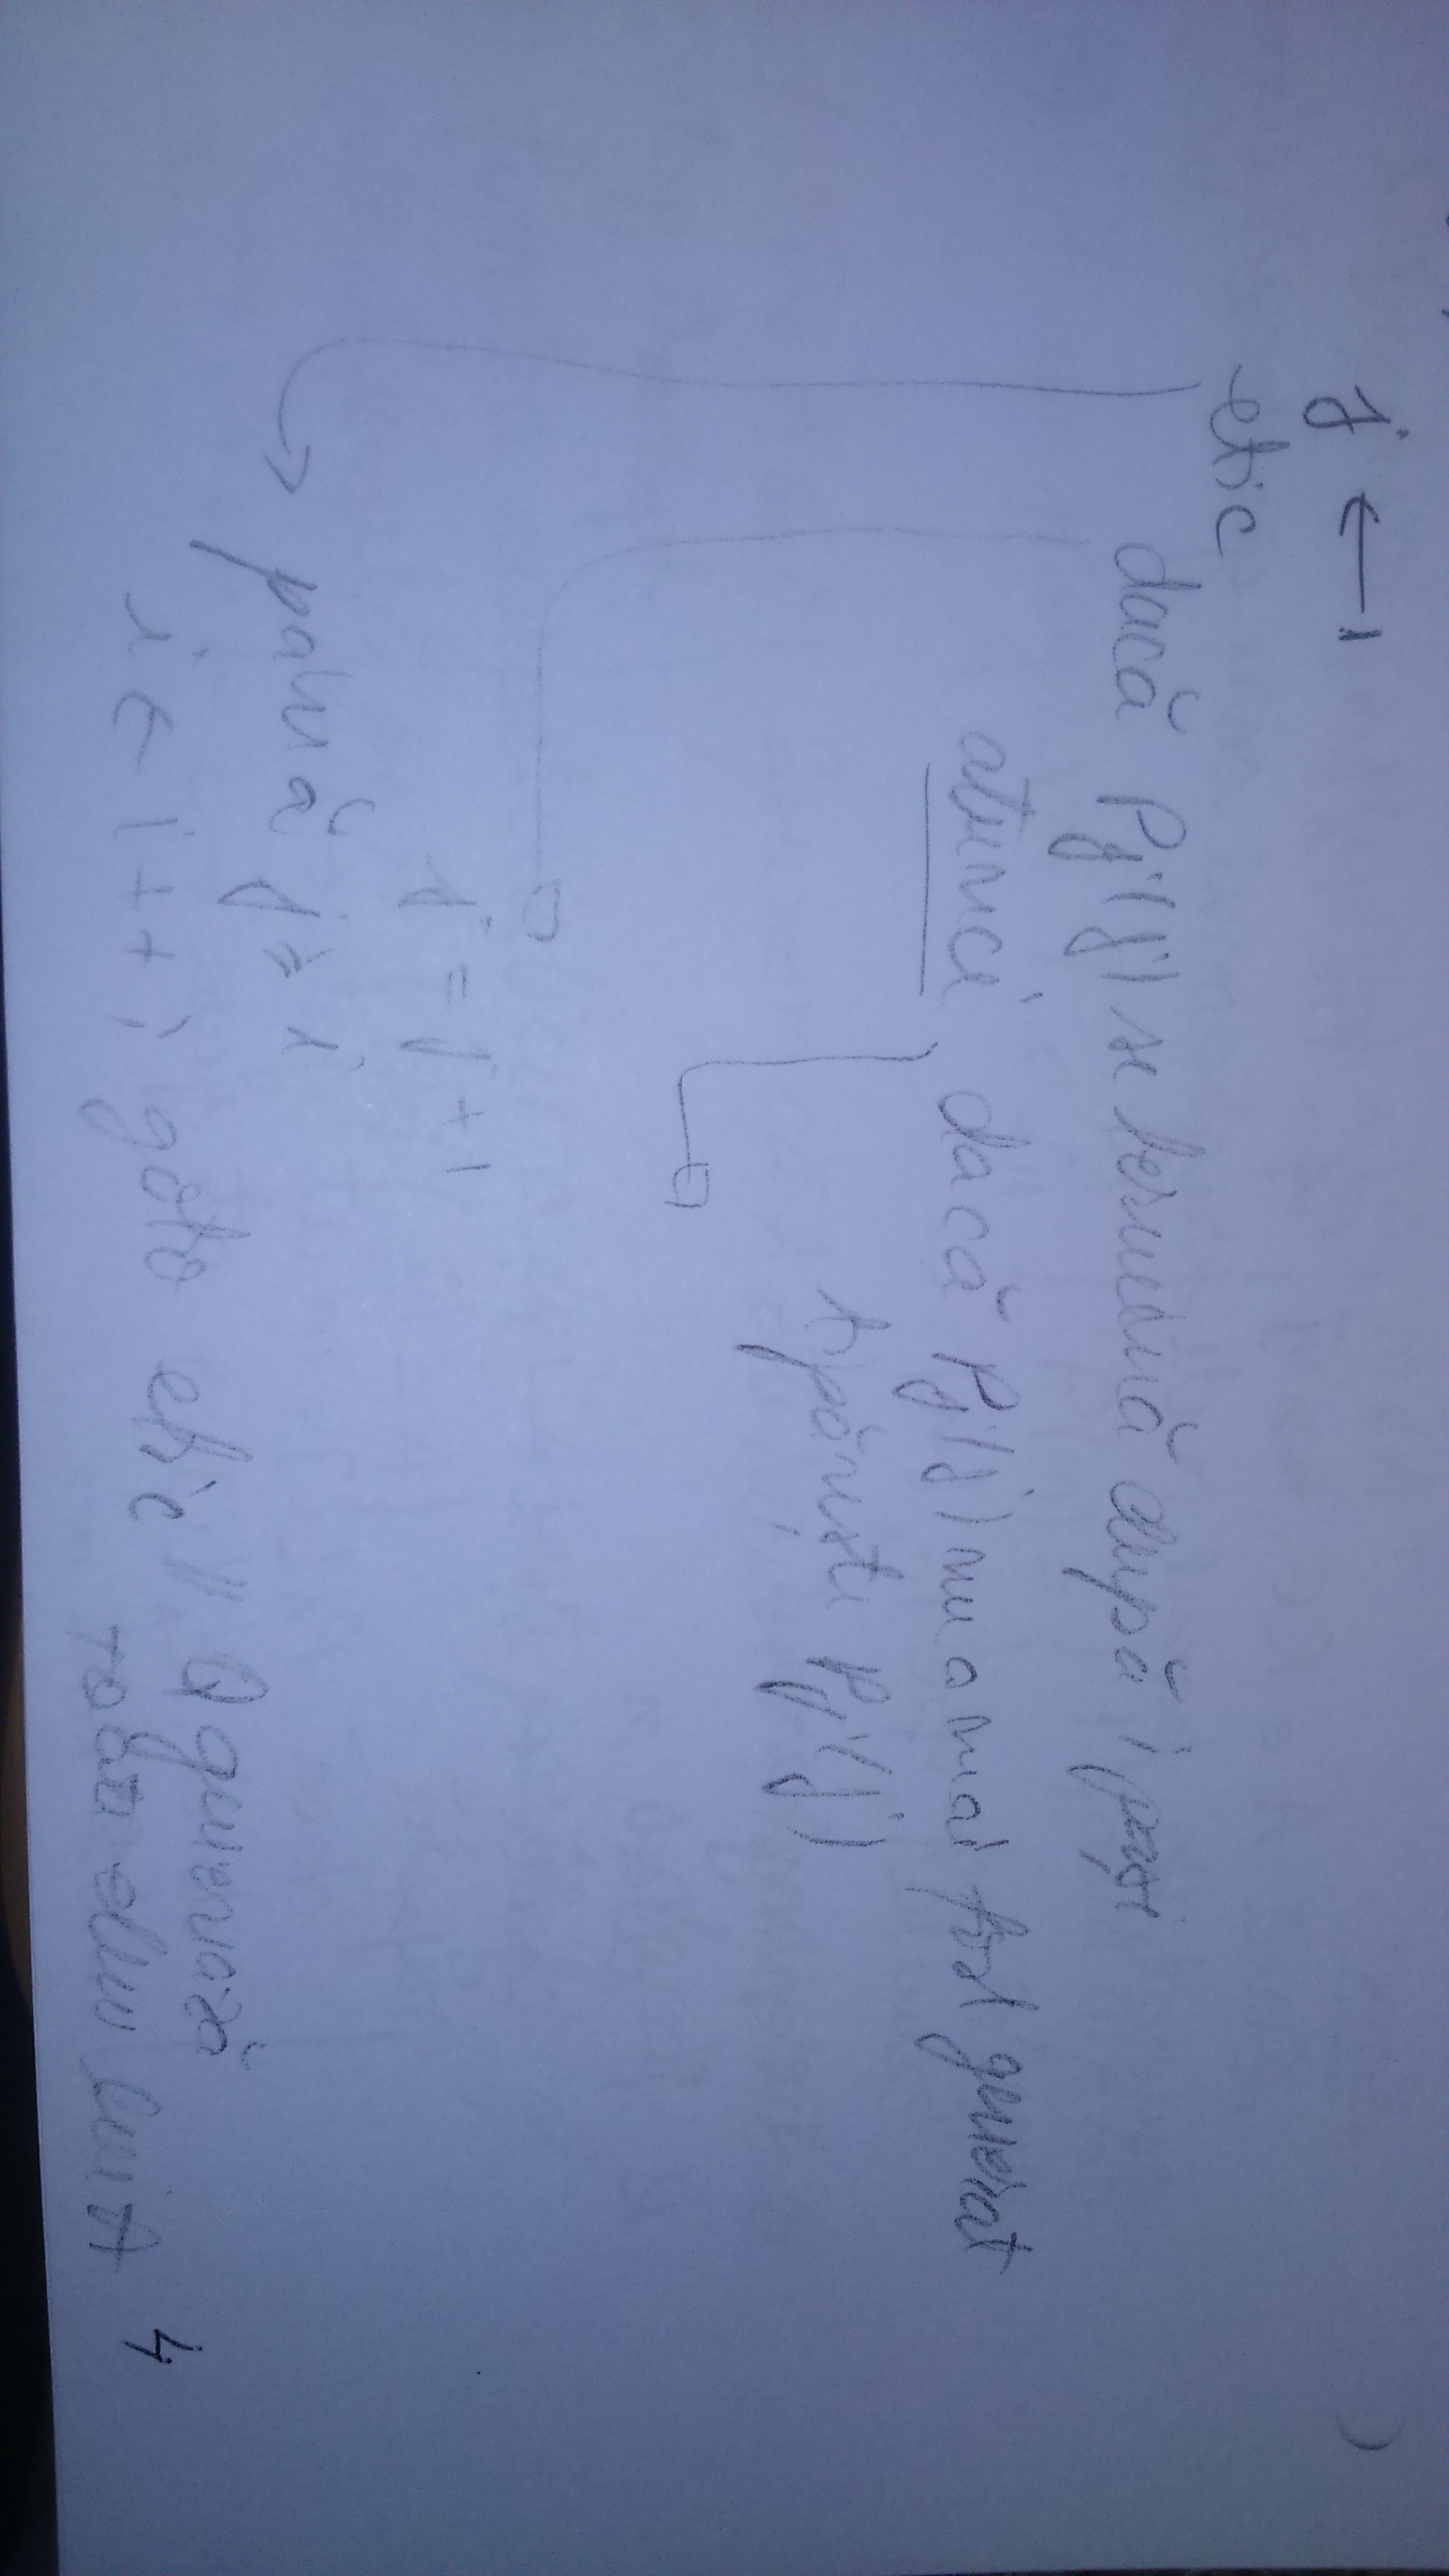 j ← 1
etic
dacă Pj(j) se termină după i pași
atunci dacă Pj(j) nu a mai fost generat
tipărește Pj(j)
j = j + 1
până j = i
i ← i + 1; goto etic // Q generază
toate elem lui A
4